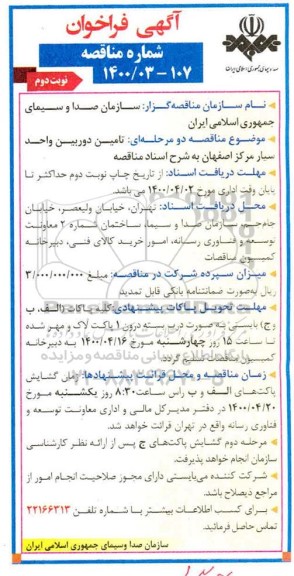 آگهی فراخوان
شماره مناقصه
۱۴۰۰/۰۳-۱۰۷
نوبت دوم
نام سازمان مناقصه‌گزار: سازمان صدا و سیمای
جمهوری اسلامی ایران
موضوع مناقصه دو مرحله‌ای: تامین دوربین واحد
سیار مرکز اصفهان به شرح اسناد مناقصه
مهلت دریافت اسناد: از تاریخ چاپ نوبت دوم حداکثر تا
پایان وقت اداری مورخ ۱۴۰۰/۰۴/۰۲ می باشد.
محل دریافت اسناد: تهران، خیابان ولیعصر، خیابان
جام‌جم، سازمان صدا و سیما، ساختمان شماره ۲ معاونت
توسعه و فناوری رسانه، امور خرید کالای فنی، دبیرخانه
کمیسیون مناقصات
میزان سپرده شرکت در مناقصه: مبلغ ۳/۰۰۰/۰۰۰/۰۰۰
ریال به‌صورت ضمانتنامه بانکی قابل تمدید
مهلت تحویل پاکات پیشنهادی: کلیه پاکات (الف، ب
و ج) بایستی به صورت دربسته درون ۱ پاکت لاک و مهر شده
تا ساعت ۱۵ روز چهارشنبه مورخ ۱۴۰۰/۰۴/۱۶ به دبیرخانه
کمیسیون مناقصات تسلیم گردد.
زمان مناقصه و محل قرائت پیشنهادها: زمان گشایش
پاکت‌های الف و ب راس ساعت ۸:۳۰ روز یکشنبه مورخ
۱۴۰۰/۰۴/۲۰ در دفتر مدیرکل مالی و اداری معاونت توسعه و
فناوری رسانه واقع در تهران قرائت خواهد شد.
مرحله دوم گشایش پاکت‌های ج پس از ارائه نظر کارشناسی
سازمان انجام خواهد پذیرفت.
شرکت کننده می‌بایستی دارای مجوز صلاحیت انجام امور از
مراجع ذیصلاح باشد.
برای کسب اطلاعات بیشتر با شماره تلفن ۲۲۱۶۶۳۱۳
تماس حاصل فرمائید.
سازمان صدا وسیمای جمهوری اسلامی ایران